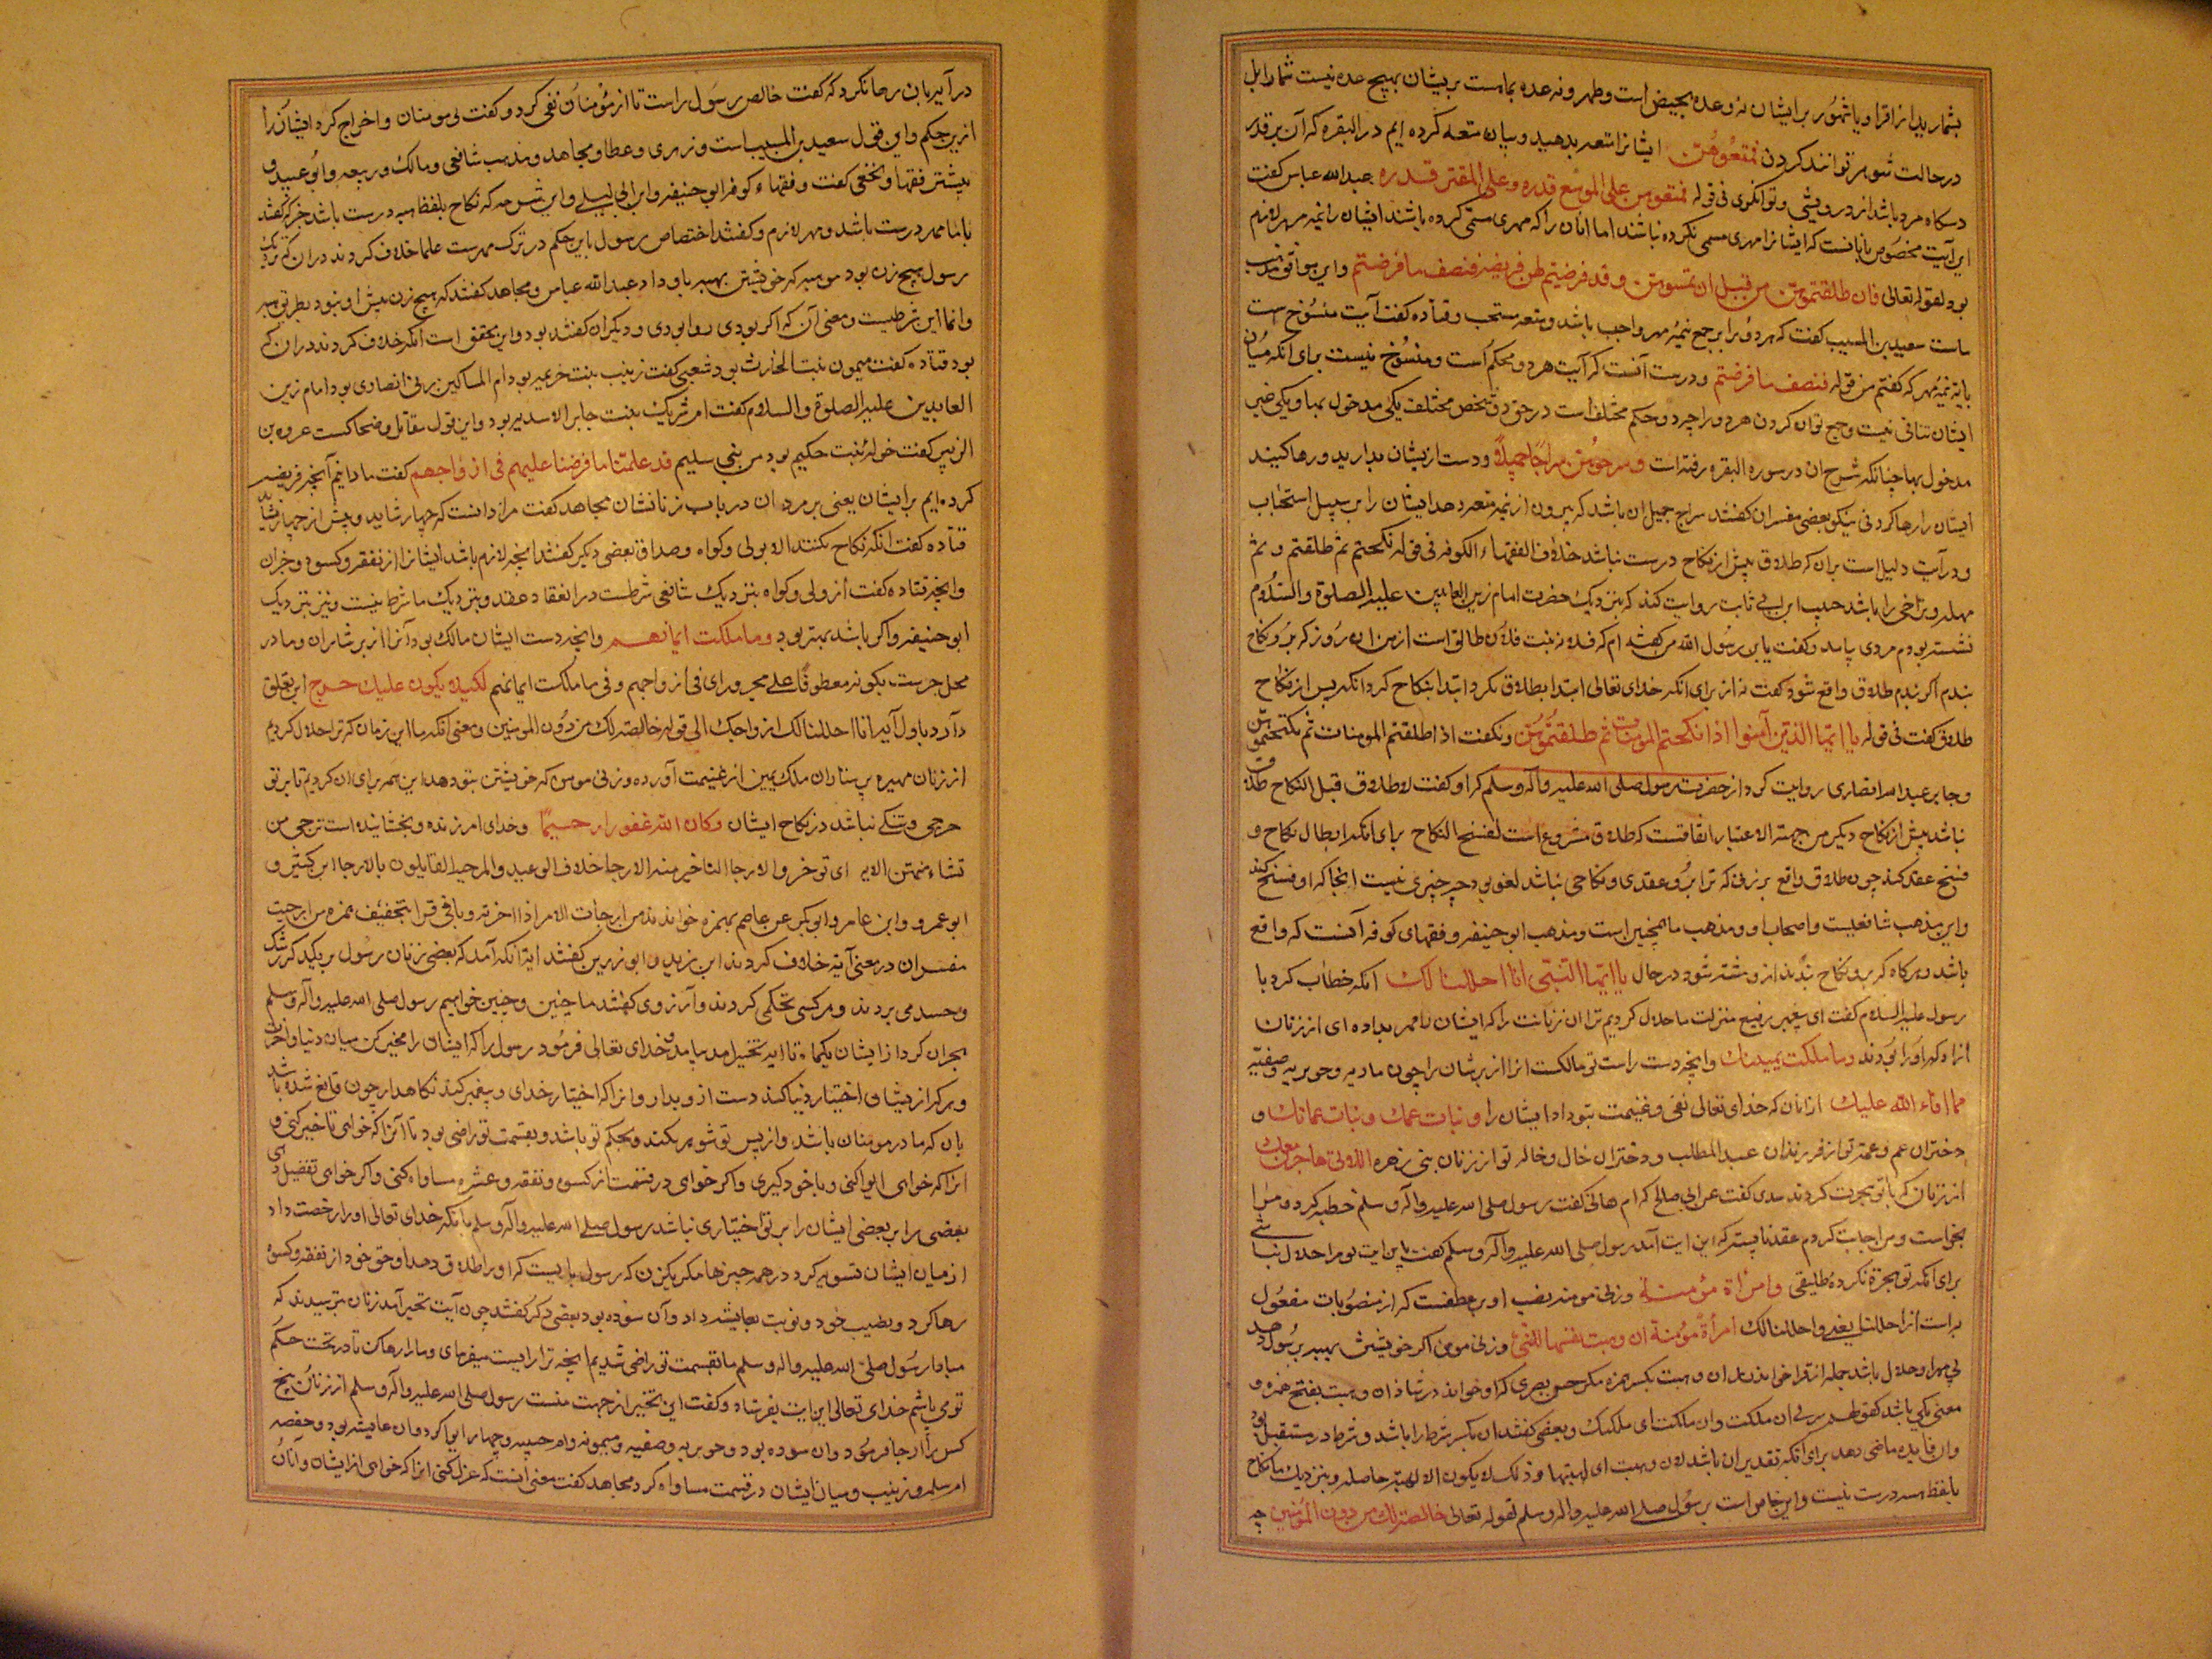 بشمارید از اقرا و یا شهور بر ایشان نه و عده بحیض است و طهر و نه عده بماهست بر ایشان هیچ عده نیست شما را بل
در حالت شوهر توانند کردن فمتعوهن ایشانرا متعه بدهید و بیان متعه کرده ایم در البقره که آن بر قدر
دسکاه مرد باشد از درویشی و توانکری فی قوله فمتعوهن علی الموسع قدره و علی المقتر قدره عبدالله عباس کفت
این آیت مخصوص بانانست که ایشانرا مهری مسمی نکرده باشند اما انان را که مهری مسمی کرده باشند ایشان را نیمه مهر لازم
بود لقوله تعالی فان طلقتموهن من قبل ان تمسوهن و قد فرضتم لهن فریضه فنصف ما فرضتم و این موافق مذهب
ماست سعید بن المسیب کفت که هر دو را بر جمع نیمه مهر واجب باشد و متعه مستحب و قتاده کفت آیت منسوخ است
بایة نیمه مهر که کفتم من قوله فنصف ما فرضتم و درست آنست که آیت هر دو محکم است و منسوخ نیست برای آنکه میان
ایشان تنافی نیست و جمع توان کردن هر دو را چه دو حکم مختلف است در حق دو شخص مختلف یکی مدخول بها و یکی غیر
مدخول بها چنانکه شرح ان در سوره البقره رفته است و سرحوهن سراحا جمیلا و دست از یشان بدارید و رها کنید
ایشان را رها کردنی نیکو بعضی مفسران کفتند سراح جمیل ان باشد که بیرون از نیمه متعه دهد ایشان را بر سبیل استحباب
و در آیت دلیل است بران که طلاق پیش از نکاح درست نباشد خلافا لفقهاء الکوفه فی قوله نکحتم ثم طلقتم و ثم
مهله و تراخی را باشد حبیب ابن ابی ثابت روایت کند که بنزدیک حضرت امام زین العابدین علیه الصلوة والسلام
نشسته بودم مردی بیامد و کفت یابن رسول الله من کفته ام که فلانه بنت فلان طالق است از من ان روز که بر و نکاح
بندم اکر بندم طلاق واقع شود کفت نه از برای انکه خدای تعالی ابتدا بطلاق نکرد ابتدا بنکاح کرد انکه پس از نکاح
طلاق کفت فی قوله یا ایها الذین آمنوا اذا نکحتم المومنات ثم طلقتموهن و نکفت اذا طلقتم المومنات ثم نکحتموهن
و جابر عبدالله انصاری روایت کرد از حضرت رسول صلی الله علیه و آله و سلم که او کفت لا طلاق قبل النکاح طلاق
نباشد پیش از نکاح دیکر من جهة الاعتبار اتفاقست که طلاق مشروع است لفسخ النکاح برای انکه ابطال نکاح و
فسخ عقد کند چون طلاق واقع بر زنی که ترا بر و عقدی و نکاحی نباشد لغو بود چه چیزی نیست انجا که او فسخ کند
و این مذهب شافعیست و اصحاب او و مذهب ما همچنین است و مذهب ابو حنیفه و فقهای کوفه آنست که واقع
باشد و هر کاه که بر و نکاح بندند از و مشتر شود در حال یا ایها النبی انا احللنا لک انکه خطاب کرد با
رسول علیه السلام کفت ای پیغمبر رفیع منزلت ما حلال کردیم ترا ان زنانت را که ایشان را مهر بداده ای از زنان
ازاد که او را بودند و ما ملکت یمینک و انچه دست راست تو مالکست انرا از بر شان را چون ماریه و جویریه و صفیه
مما افاء الله علیک از انان که خدای تعالی بفی و غنیمت بتو داد ایشان را و بنات عمک و بنات عماتک و
دختران عم و عمه تو از فرزندان عبدالمطلب و دختران خال و خاله تو از زنان بنی زهره اللاتی هاجرن معک
از زنان که با تو هجرت کردند سدی کفت عن ابی صالح که ام هانی کفت رسول صلی الله علیه و آله و سلم خطبه کرد و مرا
بخواست و من اجابت کردم عقد نابسته که این ایت آمد رسول صلی الله علیه و آله و سلم کفت باین ایت تو مرا حلال نباشی
برای آنکه تو هجرة نکرده طلیقی و امراة مؤمنة و زنی مومنه نصب او بر عطفست که از منصوبات مفعول
به است از احللنا یعنی و احللنا لک امرأة مؤمنة ان وهبت نفسها للنبی و زنی مومن اکر خویشتن بهبه برسول دهد
بی مهر او حلال باشد جمله انقرا خواندند ان وهبت بکسر همزه مکر حسن بصری که او خواند در شاذ ان وهبت بفتح همزه و
معنی یکی باشد کقولهم سرنی ان ملکت و ان ملکت ای ملکک و بعضی کفتند ان بکسر شرط را باشد و شرط در مستقبل بود
و ان فایده ماضی دهد برای انکه تقدیر ان باشد لان وهبت ای لهبتها و ذلک لا یکون الا لهبة حاصله و بنزدیک ما نکاح
بلفظ هبه درست نیست و این خاص است برسول صلی الله علیه و اله و سلم لقوله تعالی خالصة لک من دون المؤمنین چه
در آیه بان رها نکرد که کفت خالص رسول راست تا از مؤمنان نفی کرد و کفت بی مومنان و اخراج کرد ایشان را
ازین حکم و این قول سعید بن المسیب است و زهری و عطا و مجاهد و مذهب شافعی و مالک و ربیعه و ابو عبید و
بیشتر فقها و نخعی کفت و فقهاء کوفه ابو حنیفه و ابن ابی لیلی و این شبرمه که نکاح بلفظ هبه درست باشد جز که کفتند
با ما مهر درست باشد و مهر لازم و کفتند اختصاص رسول باین حکم در ترک مهرست علما خلاف کردند در ان که بنزدیک
رسول هیچ زن بود موهبه که خویشتن بهبه باو داد عبدالله عباس و مجاهد کفتند که هیچ زن پیش او نبود بطریق هبه
و انما این شرطیست و معنی آن که اکر بودی روا بودی و دیکران کفتند بود و این محقق است انکه خلاف کردند در ان که
بود قتاده کفت میمونه بنت الحارث بود شعبی کفت زینب بنت خزیمه بود ام المساکین زنی انصاری بود امام زین
العابدین علیه الصلوة و السلام کفت ام شریک بنت جابر الاسدیه بود و این قول مقاتل و ضحاکست عروه بن
الزبیر کفت خوله بنت حکیم بود من بنی سلیم قد علمنا ما فرضنا علیهم فی ازواجهم کفت ما دانیم آنچه فریضه
کرده ایم بر ایشان یعنی بر مردان در باب زنانشان مجاهد کفت مراد انست که چهار شاید و بیش از چهار نشاید
قتاده کفت انکه نکاح نکنند الا بولی و کواه و صداق بعضی دیکر کفتند انچه لازم باشد ایشانرا از نفقه و کسوه و جز ان
و انچه قتاده کفت از ولی و کواه بنزدیک شافعی شرطست در انعقاد عقد و بنزدیک ما شرط نیست و نیز بنزدیک
ابو حنیفه و اکر باشد بهتر بود و ما ملکت ایمانهم و انچه دست ایشان مالک بود آنرا از پرستاران و ما در
محل جرست بکونه معطوفا علی مجرور ای فی ازواجهم و فی ما ملکت ایمانهم لکیلا یکون علیک حرج این تعلق
دارد باول آیه انا احللنا لک ازواجک الی قوله خالصة لک من دون المومنین و معنی انکه ما این زمان که ترا حلال کردیم
از زنان مهیره و پرستاران ملک یمین از غنیمت آورده و زنی مومن که خویشتن بتو دهد این همه برای ان کردیم تا بر تو
حرجی و تنکی نباشد در نکاح ایشان و کان الله غفورا رحیما و خدای امرزنده و بخشاینده است ترجی من
تشاء منهن الایه ای توخر و الارجا التاخیر منه الارجا خلاف الوعید و المرجیه القایلون بالارجا ابن کثیر و
ابو عمرو و ابن عامر و ابوبکر عن عاصم بهمزه خواندند من ارجات الامر اذا اخرته و باقی قرا بتخفیف همزه من ارجیت
مفسران در معنی آیه خلاف کردند ابن زید و ابو رزین کفتند ایة انکه آمد که بعضی زنان رسول بر یکدیکر رشک
و حسد می بردند و هر کسی تحکمی کردند و آرزوی کفتند ما چنین و چنین خواهیم رسول صلی الله علیه و آله و سلم
هجران کرد از ایشان یکماه تا ایه تخییر بیامد و خدای تعالی فرمود رسول را که ایشان را مخیر کن میان دنیا و اخرت
و هر که از یشان اختیار دنیا کند دست از و بدار و انرا که اختیار خدای و پیغمبر کند نکاه دار چون قانع شده باشد
بان که مادر مومنان باشد و از پس تو شوهر نکند و بحکم تو باشد و بقسمت تو راضی بود تا آنرا که خواهی تاخیر کنی و
انرا که خواهی ایوا کنی و با خود کیری و اکر خواهی در قسمت از کسوه و نفقه و عشره مساواه کنی و اکر خواهی تفضیل دهی
بعضی را بر بعضی ایشان را بر تو اختیاری نباشد رسول صلی الله علیه و آله و سلم با انکه خدای تعالی او را رخصت داد
از میان ایشان تسویه کرد در همه چیزها مکر یکزن که رسول بایست که او را طلاق دهد او حق خود از نفقه و کسوه
رها کرد و نصیب خود و نوبت بعایشه داد و آن سوده بود بعضی دکر کفتند چون آیت تخییر آمد زنان بترسیدند که
مبادا رسول صلی الله علیه و اله و سلم ما بقسمت تو راضی شدیم انچه ترا رابیست میفرمای و ما را رها کن تا در تحت حکم
توی باشیم خدای تعالی این ایت بفرستاد و کفت این تخییر از جهت منست رسول صلی الله علیه و آله و سلم از زنان پنج
کس را ارجا فرمود و ان سوده بود و جویریه و صفیه و میمونه و ام حبیبه و چهار را ایوا کرد و ان عایشه بود و حفصه
ام سلمه و زینب و میان ایشان در قسمت مساواه کرد مجاهد کفت معنی انست که عزل کنی انرا که خواهی از ایشان و آنان